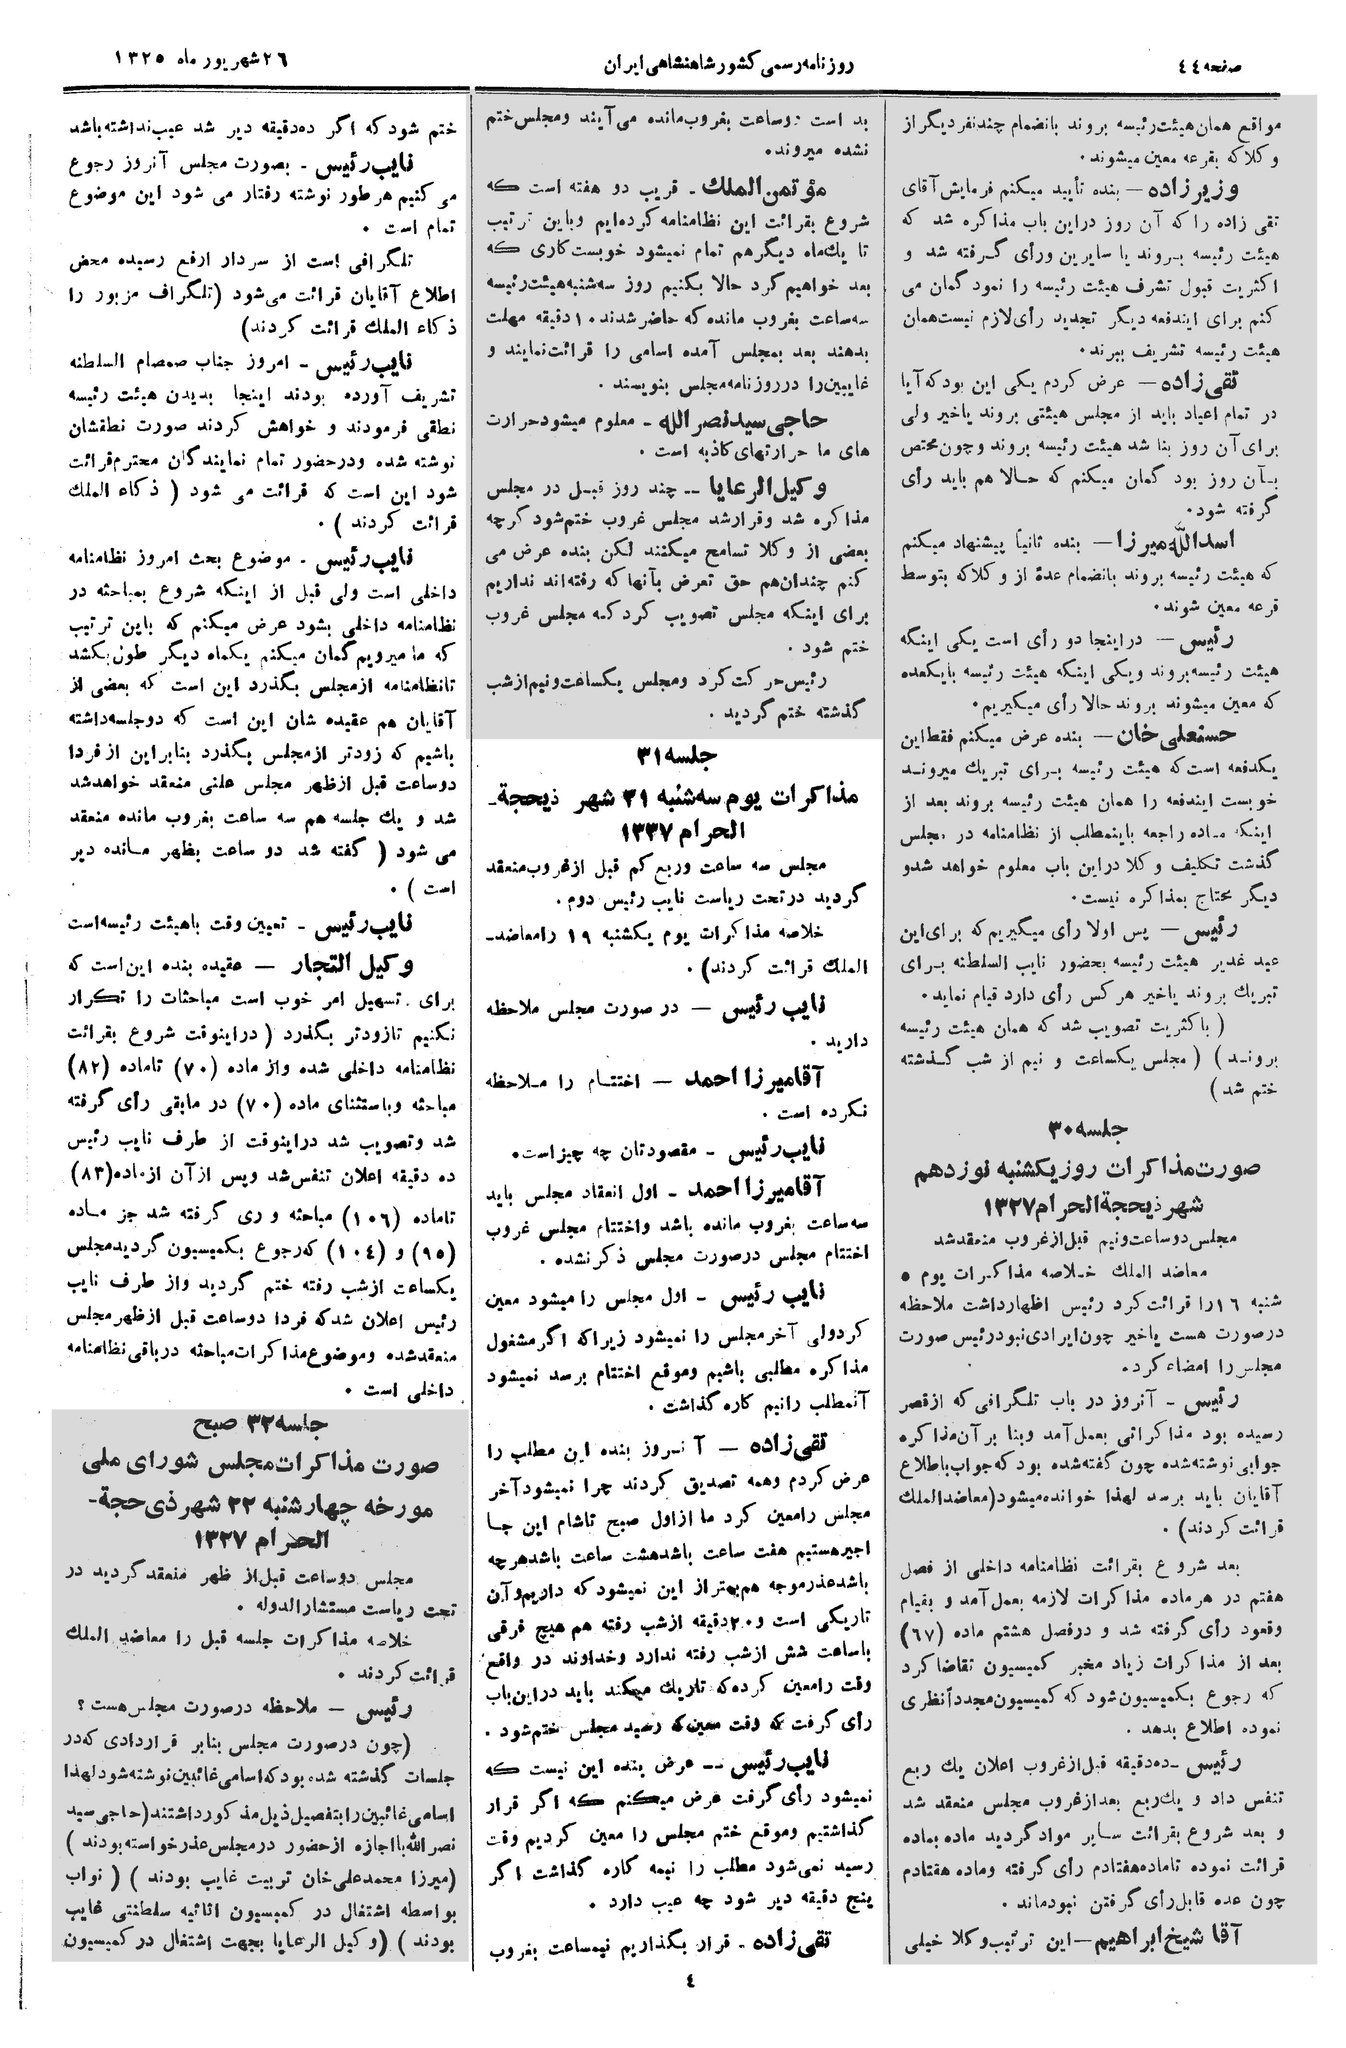 صفحه ۴۴
روزنامه رسمی کشور شاهنشاهی ایران
۲۶ شهریور ماه ۱۳۲۵
مواقع همان هیئت رئیسه بروند بانضمام چند نفر دیگر از
وکلا که بقرعه معین میشوند.
وزیر زاده — بنده تأیید میکنم فرمایش آقای
تقی زاده را که آن روز در این باب مذاکره شد که
هیئت رئیسه بروند یا سایرین و رأی گرفته شد و
اکثریت قبول تشرف هیئت رئیسه را نمود گمان می
کنم برای ایندفعه دیگر تجدید رأی لازم نیست همان
هیئت رئیسه تشریف ببرند.
تقی زاده — عرض کردم یکی این بود که آیا
در تمام اعیاد باید از مجلس هیئتی بروند یا خیر ولی
برای آن روز بنا شد هیئت رئیسه بروند و چون مختص
بآن روز بود گمان میکنم که حالا هم باید رأی
گرفته شود.
اسدالله میرزا — بنده ثانیاً پیشنهاد میکنم
که هیئت رئیسه بروند بانضمام عدهٔ از وکلا که بتوسط
قرعه معین شوند.
رئیس — در اینجا دو رأی است یکی اینکه
هیئت رئیسه بروند و یکی اینکه هیئت رئیسه با یکعده
که معین میشوند بروند حالا رأی میگیریم.
حسنعلی خان — بنده عرض میکنم فقط این
یکدفعه است که هیئت رئیسه برای تبریك میروند
خوبست ایندفعه را همان هیئت رئیسه بروند بعد از
اینکه ماده راجعه باینمطلب از نظامنامه در مجلس
گذشت تکلیف وکلا در این باب معلوم خواهد شد و
دیگر محتاج بمذاکره نیست.
رئیس — پس اولا رأی میگیریم که برای این
عید غدیر هیئت رئیسه بحضور نایب السلطنه برای
تبریك بروند یا خیر هر کس رأی دارد قیام نماید.
( باکثریت تصویب شد که همان هیئت رئیسه
بروند ) ( مجلس یکساعت و نیم از شب گذشته
ختم شد )
جلسه ۳۰
صورت مذاکرات روز یکشنبه نوزدهم
شهر ذیحجة الحرام ۱۳۲۷
مجلس دو ساعت و نیم قبل از غروب منعقد شد
معاضد الملك خلاصه مذاکرات یوم ۵
شنبه ۱۶ را قرائت کرد رئیس اظهار داشت ملاحظه
در صورت هست یا خیر چون ایرادی نبود رئیس صورت
مجلس را امضاء کرد.
رئیس - آنروز در باب تلگرافی که از قصر
رسیده بود مذاکراتی بعمل آمد و بنا بر آن مذاکره
جوابی نوشته شده چون گفته شده بود که جواب باطلاع
آقایان باید برسد لهذا خوانده میشود (معاضد الملك
قرائت کردند).
بعد شروع بقرائت نظامنامه داخلی از فصل
هفتم در هر ماده مذاکرات لازمه بعمل آمد و بقیام
وقعود رأی گرفته شد و در فصل هشتم ماده (۶۷)
بعد از مذاکرات زیاد مخبر کمیسیون تقاضا کرد
که رجوع بکمیسیون شود که کمیسیون مجدداً نظری
نموده اطلاع بدهد.
رئیس - ده دقیقه قبل از غروب اعلان یك ربع
تنفس داد و یك ربع بعد از غروب مجلس منعقد شد
و بعد شروع بقرائت سایر مواد گردید ماده بماده
قرائت نموده تا ماده هفتادم رأی گرفته و ماده هفتادم
چون عده قابل رأی گرفتن نبود ماند.
آقا شیخ ابراهیم — این ترتیب وکلا خیلی
بد است دو ساعت بغروب مانده می آیند و مجلس ختم
نشده میروند.
مؤتمن الملك - قریب دو هفته است که
شروع بقرائت این نظامنامه کرده ایم و باین ترتیب
تا یك ماه دیگر هم تمام نمیشود خوبست کاری که
بعد خواهیم کرد حالا بکنیم روز سه شنبه هیئت رئیسه
سه ساعت بغروب مانده که حاضر شدند ۱۰ دقیقه مهلت
بدهند بعد بمجلس آمده اسامی را قرائت نمایند و
غایبین را در روزنامه مجلس بنویسند.
حاجی سید نصرالله - معلوم میشود حرارت
های ما حرارتهای کاذبه است.
وکیل الرعایا -- چند روز قبل در مجلس
مذاکره شد و قرار شد مجلس غروب ختم شود گرچه
بعضی از وکلا تسامح میکنند لکن بنده عرض می
کنم چندان هم حق تعرض بآنها که رفته اند نداریم
برای اینکه مجلس تصویب کرد که مجلس غروب
ختم شود.
رئیس حرکت کرد و مجلس یکساعت و نیم از شب
گذشته ختم گردید.
جلسه ۳۱
مذاکرات یوم سه شنبه ۲۱ شهر ذیحجة-
الحرام ۱۳۲۷
مجلس سه ساعت و ربع کم قبل از غروب منعقد
گردید در تحت ریاست نایب رئیس دوم.
خلاصه مذاکرات یوم یکشنبه ۱۹ را معاضد-
الملك قرائت کردند).
نایب رئیس — در صورت مجلس ملاحظه
دارید.
آقا میرزا احمد — اختتام را ملاحظه
نکرده است.
نایب رئیس - مقصودتان چه چیز است.
آقا میرزا احمد - اول انعقاد مجلس باید
سه ساعت بغروب مانده باشد و اختتام مجلس غروب
اختتام مجلس در صورت مجلس ذکر نشده.
نایب رئیس - اول مجلس را میشود معین
کرد ولی آخر مجلس را نمیشود زیرا که اگر مشغول
مذاکره مطلبی باشیم و موقع اختتام برسد نمیشود
آنمطلب را نیم کاره گذاشت.
تقی زاده — آنروز بنده این مطلب را
عرض کردم و همه تصدیق کردند چرا نمیشود آخر
مجلس را معین کرد ما از اول صبح تا شام این جا
اجیر هستیم هفت ساعت باشد هشت ساعت باشد هر چه
باشد عذر موجه هم بهتر از این نمیشود که داریم و آن
تاریکی است و ۲۰ دقیقه از شب رفته هم هیچ فرقی
با ساعت شش از شب رفته ندارد و خداوند در واقع
وقت را معین کرده که تاریك میکند باید در این باب
رأی گرفت که وقت معین که رسید مجلس ختم شود.
نایب رئیس -- عرض بنده این نیست که
نمیشود رأی گرفت عرض میکنم که اگر قرار
گذاشتیم و موقع ختم مجلس را معین کردیم وقت
رسید نمی شود مطلب را نیمه کاره گذاشت اگر
پنج دقیقه دیر شود چه عیب دارد.
تقی زاده - قرار بگذاریم نیمساعت بغروب
ختم شود که اگر ده دقیقه دیر شد عیب نداشته باشد
نایب رئیس - بصورت مجلس آنروز رجوع
می کنیم هر طور نوشته رفتار می شود این موضوع
تمام است.
تلگرافی است از سردار ارفع رسیده محض
اطلاع آقایان قرائت می شود (تلگراف مزبور را
ذکاء الملك قرائت کردند)
نایب رئیس - امروز جناب صمصام السلطنه
تشریف آورده بودند اینجا بدیدن هیئت رئیسه
نطقی فرمودند و خواهش کردند صورت نطقشان
نوشته شده و در حضور تمام نمایندگان محترم قرائت
شود این است که قرائت می شود ( ذکاء الملك
قرائت کردند ).
نایب رئیس - موضوع بحث امروز نظامنامه
داخلی است ولی قبل از اینکه شروع بمباحثه در
نظامنامه داخلی بشود عرض میکنم که باین ترتیب
که ما میرویم گمان میکنم یکماه دیگر طول بکشد
تا نظامنامه از مجلس بگذرد این است که بعضی از
آقایان هم عقیده شان این است که دو جلسه داشته
باشیم که زودتر از مجلس بگذرد بنابر این از فردا
دو ساعت قبل از ظهر مجلس علنی منعقد خواهد شد
شد و یك جلسه هم سه ساعت بغروب مانده منعقد
می شود ( گفته شد دو ساعت بظهر مانده دیر
است ).
نایب رئیس - تعیین وقت با هیئت رئیسه است
وکیل التجار — عقیده بنده این است که
برای تسهیل امر خوب است مباحثات را تکرار
نکنیم تا زودتر بگذرد ( در اینوقت شروع بقرائت
نظامنامه داخلی شده و از ماده (۷۰) تا ماده (۸۲)
مباحثه و باستثنای ماده (۷۰) در مابقی رأی گرفته
شد و تصویب شد در اینوقت از طرف نایب رئیس
ده دقیقه اعلان تنفس شد و پس از آن از ماده (۸۳)
تا ماده (۱۰۶) مباحثه و ری گرفته شد جز ماده
(۹۵) و (۱۰۴) که رجوع بکمیسیون گردید مجلس
یکساعت از شب رفته ختم گردید و از طرف نایب
رئیس اعلان شد که فردا دو ساعت قبل از ظهر مجلس
منعقد شده و موضوع مذاکرات مباحثه در باقی نظامنامه
داخلی است.
جلسه ۳۲ صبح
صورت مذاکرات مجلس شورای ملی
مورخه چهارشنبه ۲۲ شهر ذی حجة-
الحرام ۱۳۲۷
مجلس دو ساعت قبل از ظهر منعقد گردید در
تحت ریاست مستشار الدوله.
خلاصه مذاکرات جلسه قبل را معاضد الملك
قرائت کردند.
رئیس — ملاحظه در صورت مجلس هست؟
(چون در صورت مجلس بنابر قراردادی که در
جلسات گذشته شده بود که اسامی غائبین نوشته شود لهذا
اسامی غائبین را بتفصیل ذیل مذکور داشتند (حاجی سید
نصرالله با اجازه از حضور در مجلس عذر خواسته بودند )
(میرزا محمد علی خان تربیت غایب بودند ) ( نواب
بواسطه اشتغال در کمیسیون اثاثیه سلطنتی غایب
بودند ) (وکیل الرعایا بجهت اشتغال در کمیسیون
٤